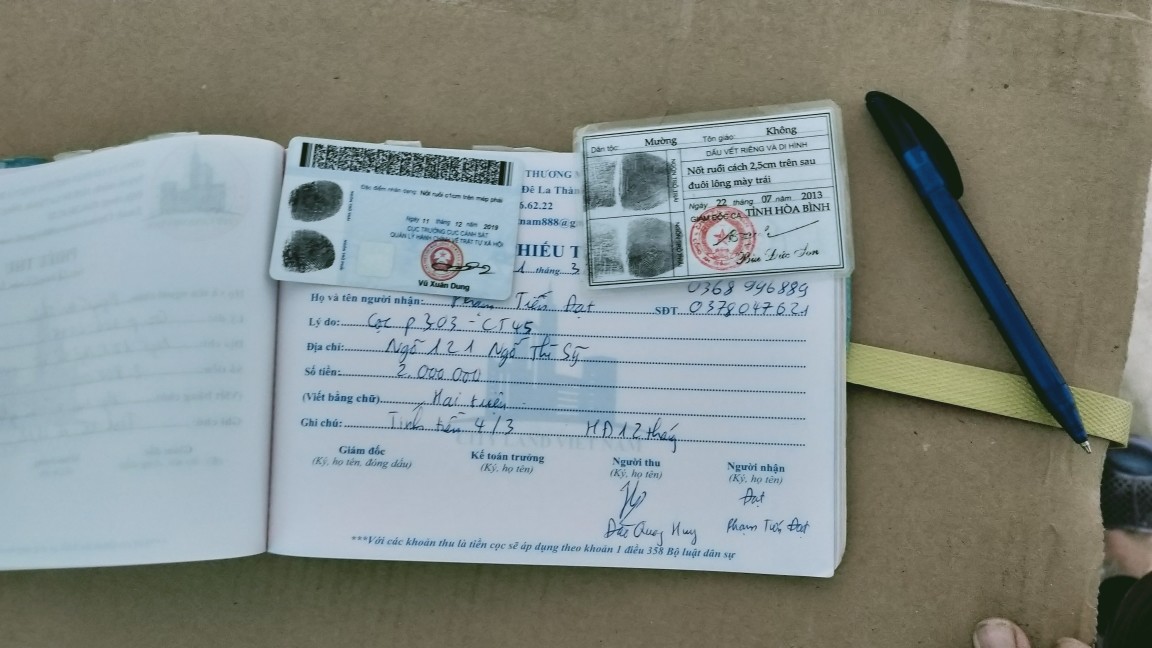 Đặc điểm nhân dạng: Nốt ruồi c1cm trên mép phải
NGÓN TRỎ TRÁI
NGÓN TRỎ PHẢI
Ngày 11 tháng 12 năm 2019
CỤC TRƯỞNG CỤC CẢNH SÁT
QUẢN LÝ HÀNH CHÍNH VỀ TRẬT TỰ XÃ HỘI
Vũ Xuân Dung
Dân tộc: Mường Tôn giáo: Không
DẤU VẾT RIÊNG VÀ DỊ HÌNH
NGÓN TRỎ TRÁI
NGÓN TRỎ PHẢI
Nốt ruồi cách 2,5cm trên sau
đuôi lông mày trái
Ngày 22 tháng 07 năm 2013
GIÁM ĐỐC CA TỈNH HÒA BÌNH
Bùi Đức Sơn
THƯƠNG
Đê La Thàn
6.62.22
nam888@g
HIẾU T
1 tháng 3
0368 996889
Họ và tên người nhận: Phạm Tiến Đạt SĐT 0378047621
Lý do: Cọc p303 - CT45
Địa chỉ: Ngõ 121 Ngô Thì Sỹ
Số tiền: 2.000.000
(Viết bằng chữ) Hai triệu
Ghi chú: Tính tiền 4/3 HĐ 12 tháng
CITY LAND VIỆT NAM
Giám đốc Kế toán trưởng Người thu Người nhận
(Ký, họ tên, đóng dấu) (Ký, họ tên) (Ký, họ tên) (Ký, họ tên)
Đạt
Quang Huy Phạm Tiến Đạt
***Với các khoản thu là tiền cọc sẽ áp dụng theo khoản 1 điều 358 Bộ luật dân sự